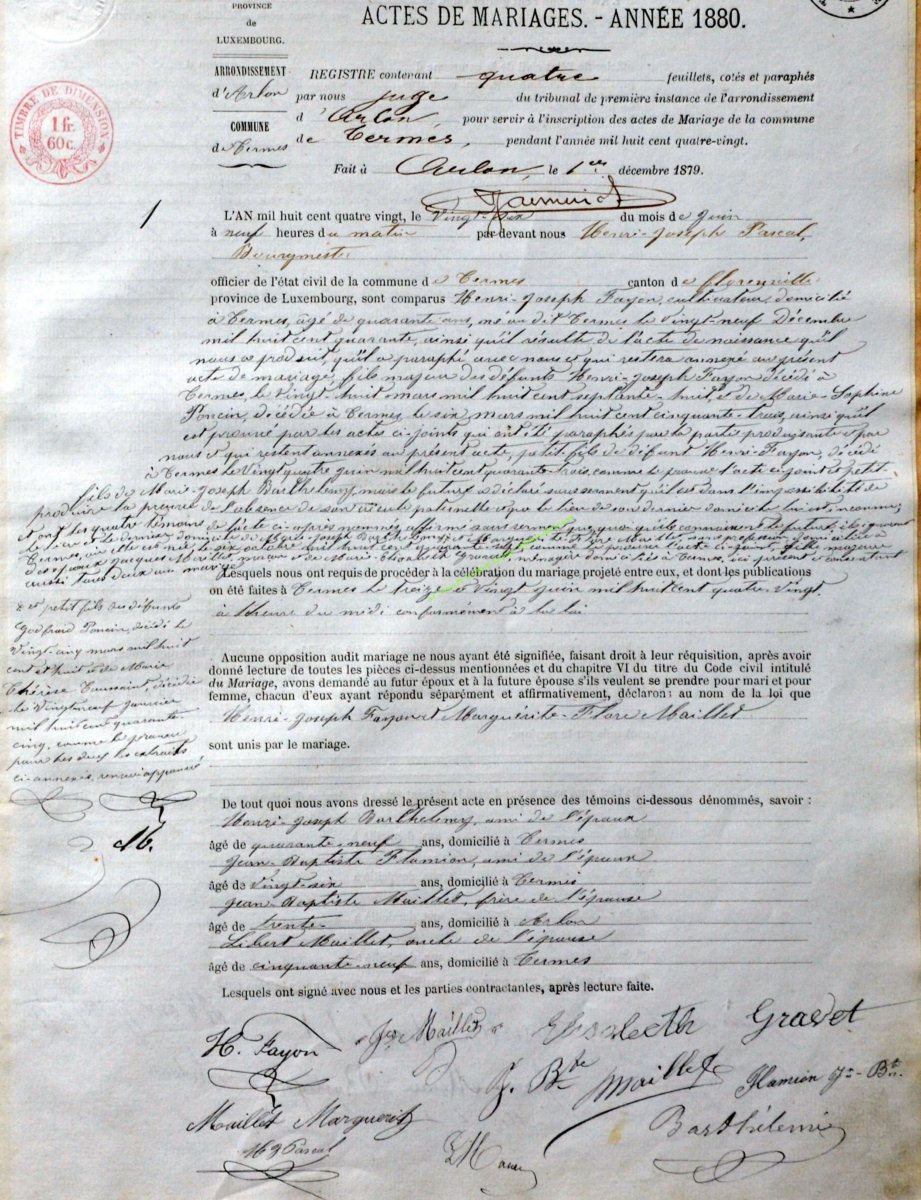 PROVINCE
de
LUXEMBOURG.
ARRONDISSEMENT
d'Arlon
COMMUNE
de Termes
TIMBRE DE DIMENSION
1 fr.
60 c.
ACTES DE MARIAGES. - ANNÉE 1880.
REGISTRE contenant quatre feuillets, cotés et paraphés
par nous juge du tribunal de première instance de l'arrondissement
d'Arlon pour servir à l'inscription des actes de Mariage de la commune
de Termes, pendant l'année mil huit cent quatre-vingt.
Fait à Arlon, le 1er décembre 1879.
1
L'AN mil huit cent quatre vingt, le Vingt-six du mois de Juin
à neuf heures du matin par devant nous Henri-Joseph Pascal,
Bourgmestre
officier de l'état civil de la commune de Termes canton de florenville
province de Luxembourg, sont comparus Henri-Joseph Fayon, cultivateur, domicilié
à Termes, âgé de quarante ans, né au dit Termes le Vingt-neuf Décembre
mil huit cent quarante, ainsi qu'il résulte de l'acte de naissance qu'il
nous a produit qu'il a paraphé avec nous et qui restera annexé au présent
acte de mariage, fils majeur des défunts Henri-Joseph Fayon décédé à
Termes, le Vingt-huit mars mil huit cent septante-huit, et de Marie-Josphine
Poncin, décédée à Termes, le six mars mil huit cent cinquante-trois, ainsi qu'il
est prouvé par les actes ci-joints qui ont été paraphés par la partie produisante et par
nous et qui restent annexés au présent acte, petit-fils de défunt Henri-Fayon, décédé
à Termes le Vingt quatre Juin mil huit cent quarante-trois, comme le prouve l'acte ci-joint et petit-
fils de Marie-Joseph Barthelemy, mais le futur a déclaré sous serment qu'il est dans l'impossibilité de
produire la preuve de l'absence de son aïeule paternelle et que le lieu de son dernier domicile lui est inconnu;
et ont les quatre témoins de l'acte ci-après nommés affirmé sous serment que, quoiqu'ils connaissent le futur, ils ignorent
le lieu et le dernier domicile de Marie-Joseph Barthelemy et Marguerite-Flore Maillet, sans profession, domiciliée à
Termes, où elle est née le six octobre mil huit cent comme le prouve l'acte ci-joint, fille majeure
de Jacques Maillet et de Marie Gravet, ménagère domiciliés à Termes, ici présents et consentant
aussi tous deux au mariage
Lesquels nous ont requis de procéder à la célébration du mariage projeté entre eux, et dont les publications
on été faites à Termes le treize et Vingt Juin mil huit cent quatre-Vingt,
à l'heure du midi conformément à la loi
Et petit fils des défunts
Godfroid Poncin, décédé le
Vingt-cinq mars mil huit
cent et huit et de Marie
Thérèse Toussaint, décédée
le Vingt neuf Janvier
mil huit cent quarante-
cinq, comme le prouve
pour les deux les extraits
ci-annexés, renvoi approuvé
M.
Aucune opposition audit mariage ne nous ayant été signifiée, faisant droit à leur réquisition, après avoir
donné lecture de toutes les pièces ci-dessus mentionnées et du chapitre VI du titre du Code civil intitulé
du Mariage, avons demandé au futur époux et à la future épouse s'ils veulent se prendre pour mari et pour
femme, chacun d'eux ayant répondu séparément et affirmativement, déclaron: au nom de la loi que
Henri-Joseph Fayon et Marguérite-Flore Maillet
sont unis par le mariage.
De tout quoi nous avons dressé le présent acte en présence des témoins ci-dessous dénommés, savoir :
Henri-Joseph Barthelemy, ami de l'époux
âgé de quarante-neuf ans, domicilié à Termes
Jean-Baptiste Flamion, ami de l'époux
âgé de Vingt-six ans, domicilié à Termes
Jean-Baptiste Maillet, frère de l'épouse
âgé de trente ans, domicilié à Arlon
Libert Maillet, oncle de l'épouse
âgé de cinquante-neuf ans, domicilié à Termes
Lesquels ont signé avec nous et les parties contractantes, après lecture faite.
H. Fayon Jes Maillet Elisabeth Gravet
J. Bte Maillet Flamion Jn-Bte
Maillet Marguerite Barthélemi
HJ Pascal